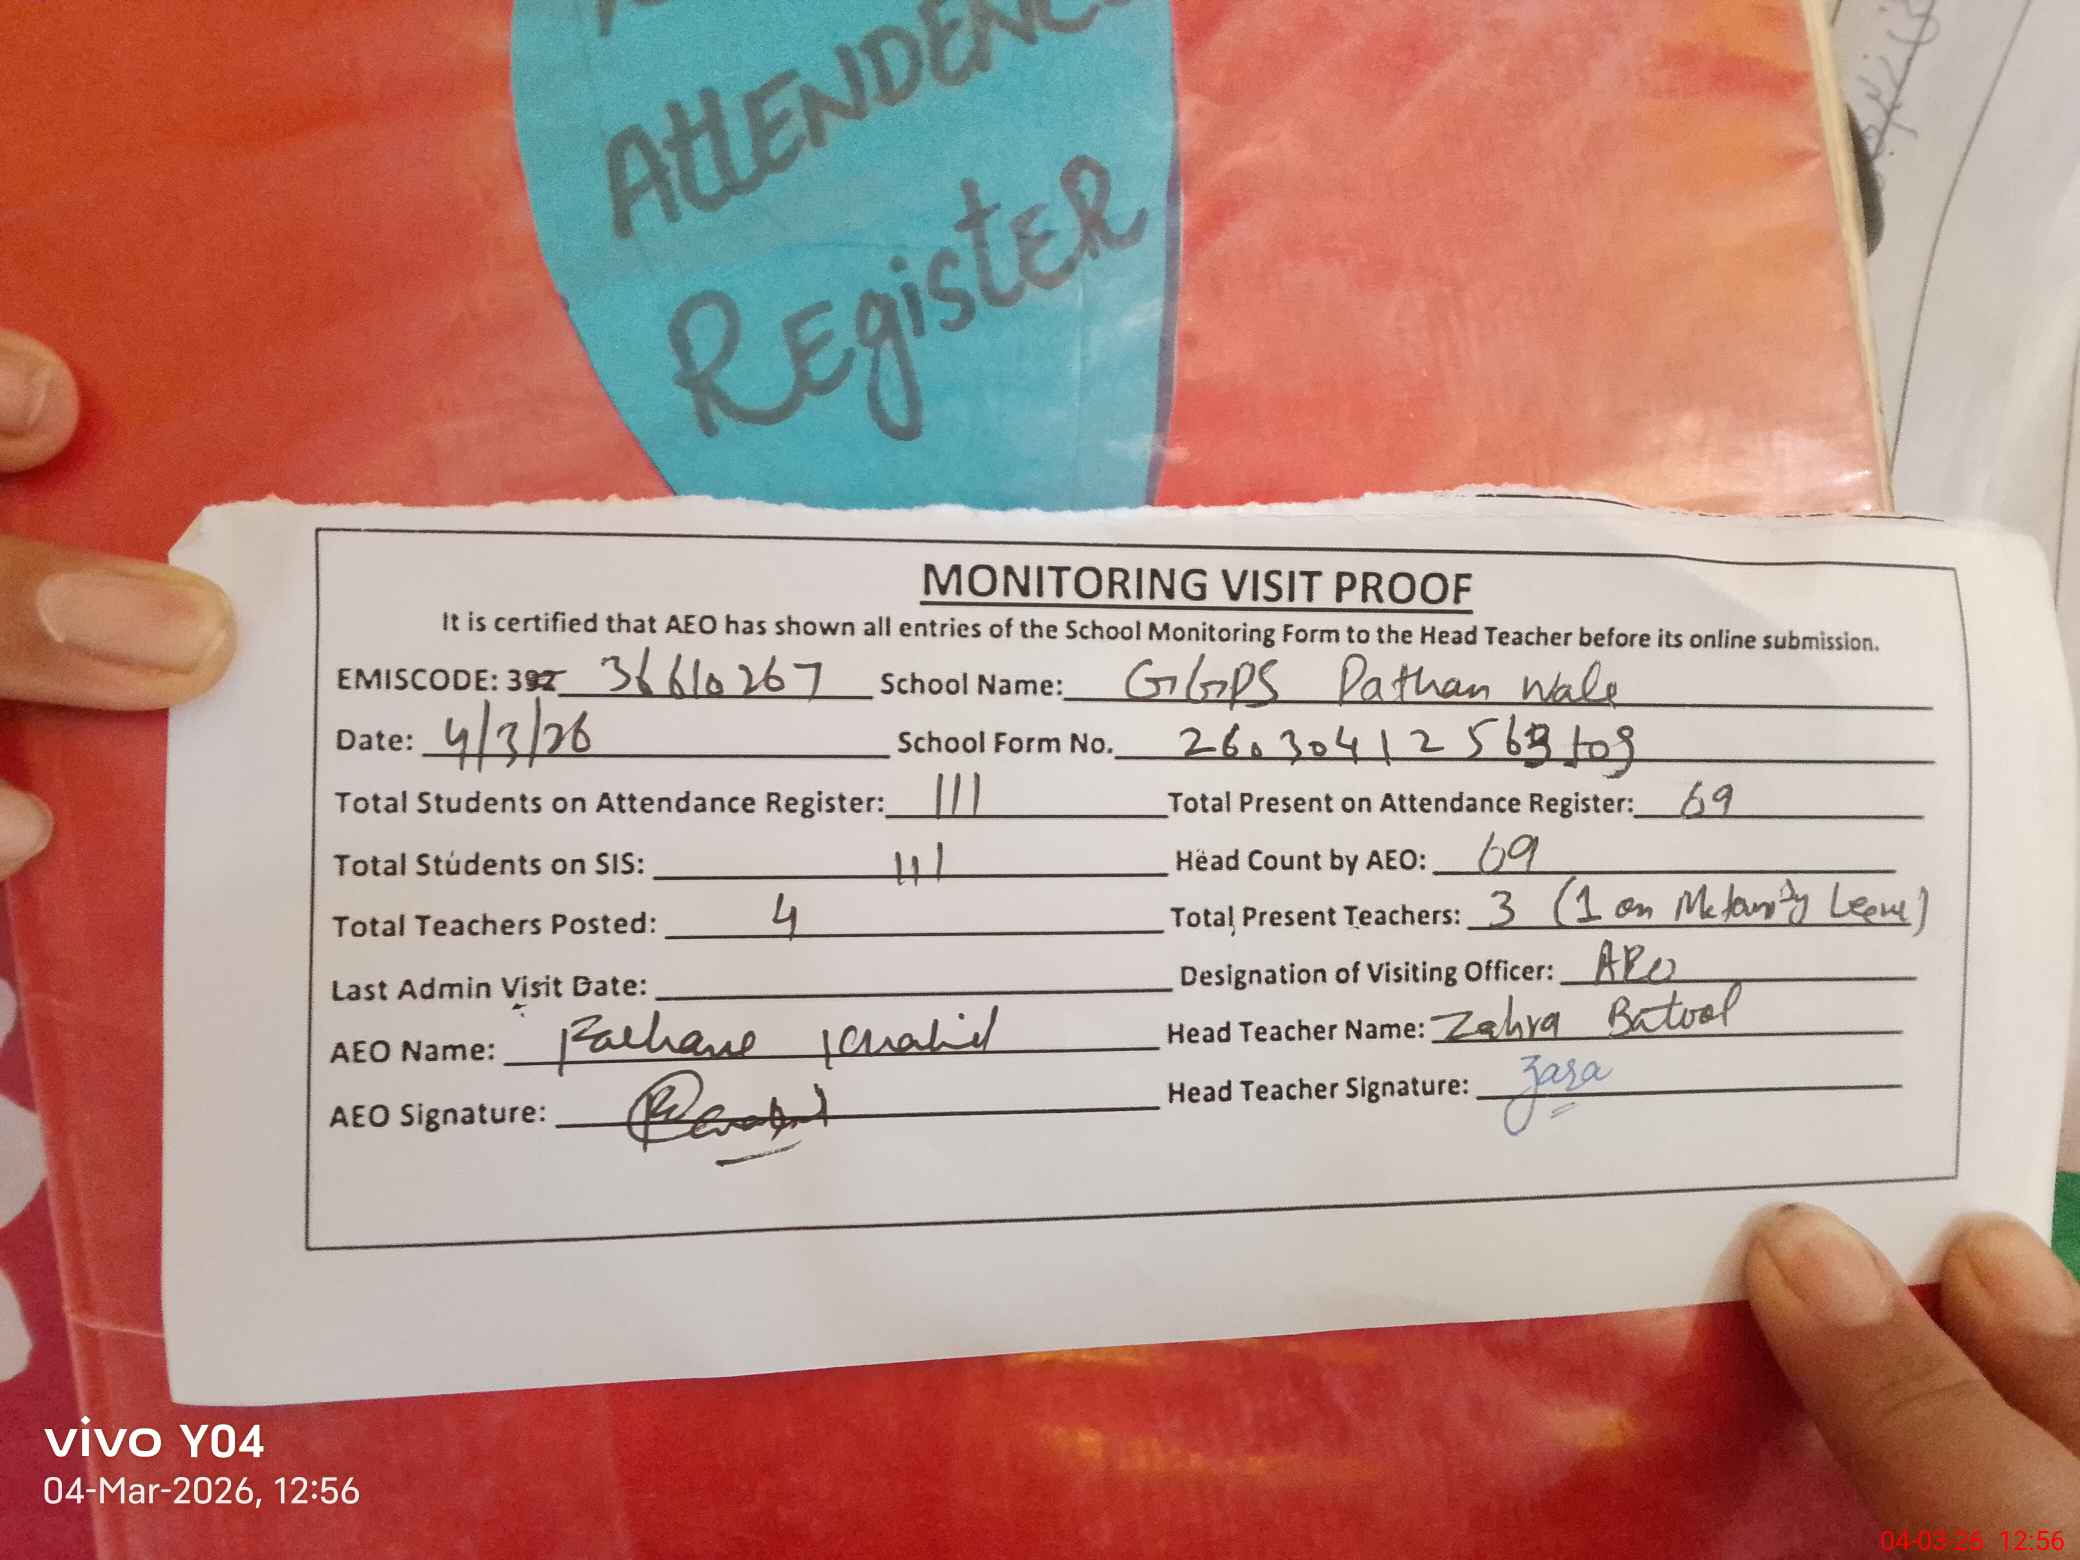 ATTENDENC
REgisTER
MONITORING VISIT PROOF
It is certified that AEO has shown all entries of the School Monitoring Form to the Head Teacher before its online submission.
EMISCODE: 392 36610267 School Name: GGPS Pathan Wale
Date: 4/3/26 School Form No. 26030412563
Total Students on Attendance Register: 111 Total Present on Attendance Register: 69
Total Students on SIS: 111 Head Count by AEO: 69
Total Teachers Posted: 4 Total Present Teachers: 3 (1 on Leave)
Last Admin Visit Date: Designation of Visiting Officer: AEO
AEO Name: Head Teacher Name: Zahra Batool
AEO Signature: Head Teacher Signature: Zara
vivo Y04
04-Mar-2026, 12:56
04-03-26 12:56